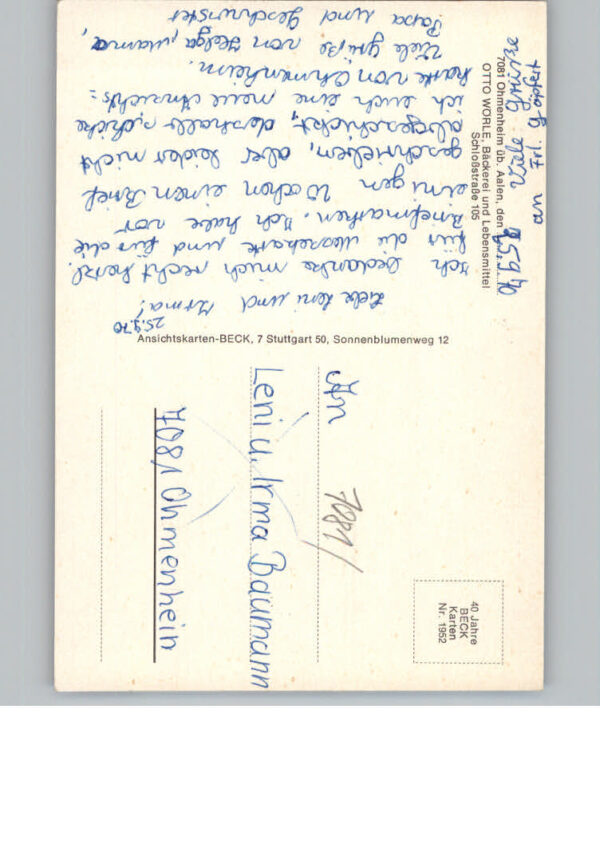 25.9.70
Liebe Leni und Irma!
Ich bedanke mich recht herzl.
für die und für die
Briefmarken. Ich habe vor
einigen Wochen einen Brief
geschrieben, aber leider nicht
abgeschickt, deshalb schicke
ich euch eine neue Ansichts=
karte von Ohmenheim.
Viele Grüße von Helga, Mama,
Papa und Geschwister
OTTO WÖRLE, Bäckerei und Lebensmittel
Schloßstraße 105
7081 Ohmenheim üb. Aalen, den
Ansichtskarten-BECK, 7 Stuttgart 50, Sonnenblumenweg 12
40 Jahre
BECK
Karten
Nr. 1952
An
7081
Leni u. Irma Baumann
7081 Ohmenhein